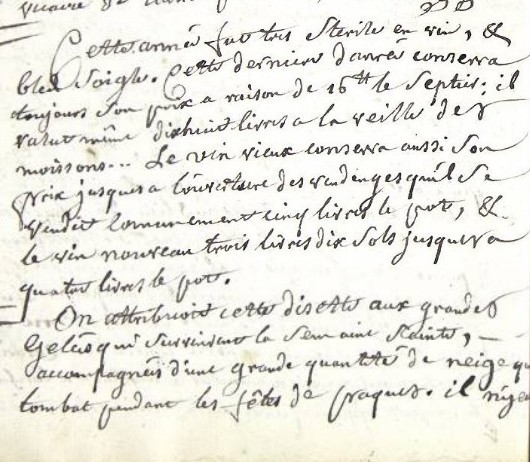 vicaire de
Cette année fut tres sterile en vin, &
bled Soigle. Cette derniere danrée conserva
toujours son prix a raison de 16tt le septier; il
valut même dixhuit livres a la veille des
moissons... Le vin vieux conserva aussi son
prix jusques a l'ouverture des vendenges qu'il se
vendit comunement cinq livres le pot, &
le vin nouveau trois livres dix sols jusques a
quatre livres le pot.
On attribuoit cette disette aux grandes
Gelées qui survinrent la semaine sainte,
accompagnées d'une grande quantité de neige qu
tombat pendant les fêtes de paques. il n'y eu